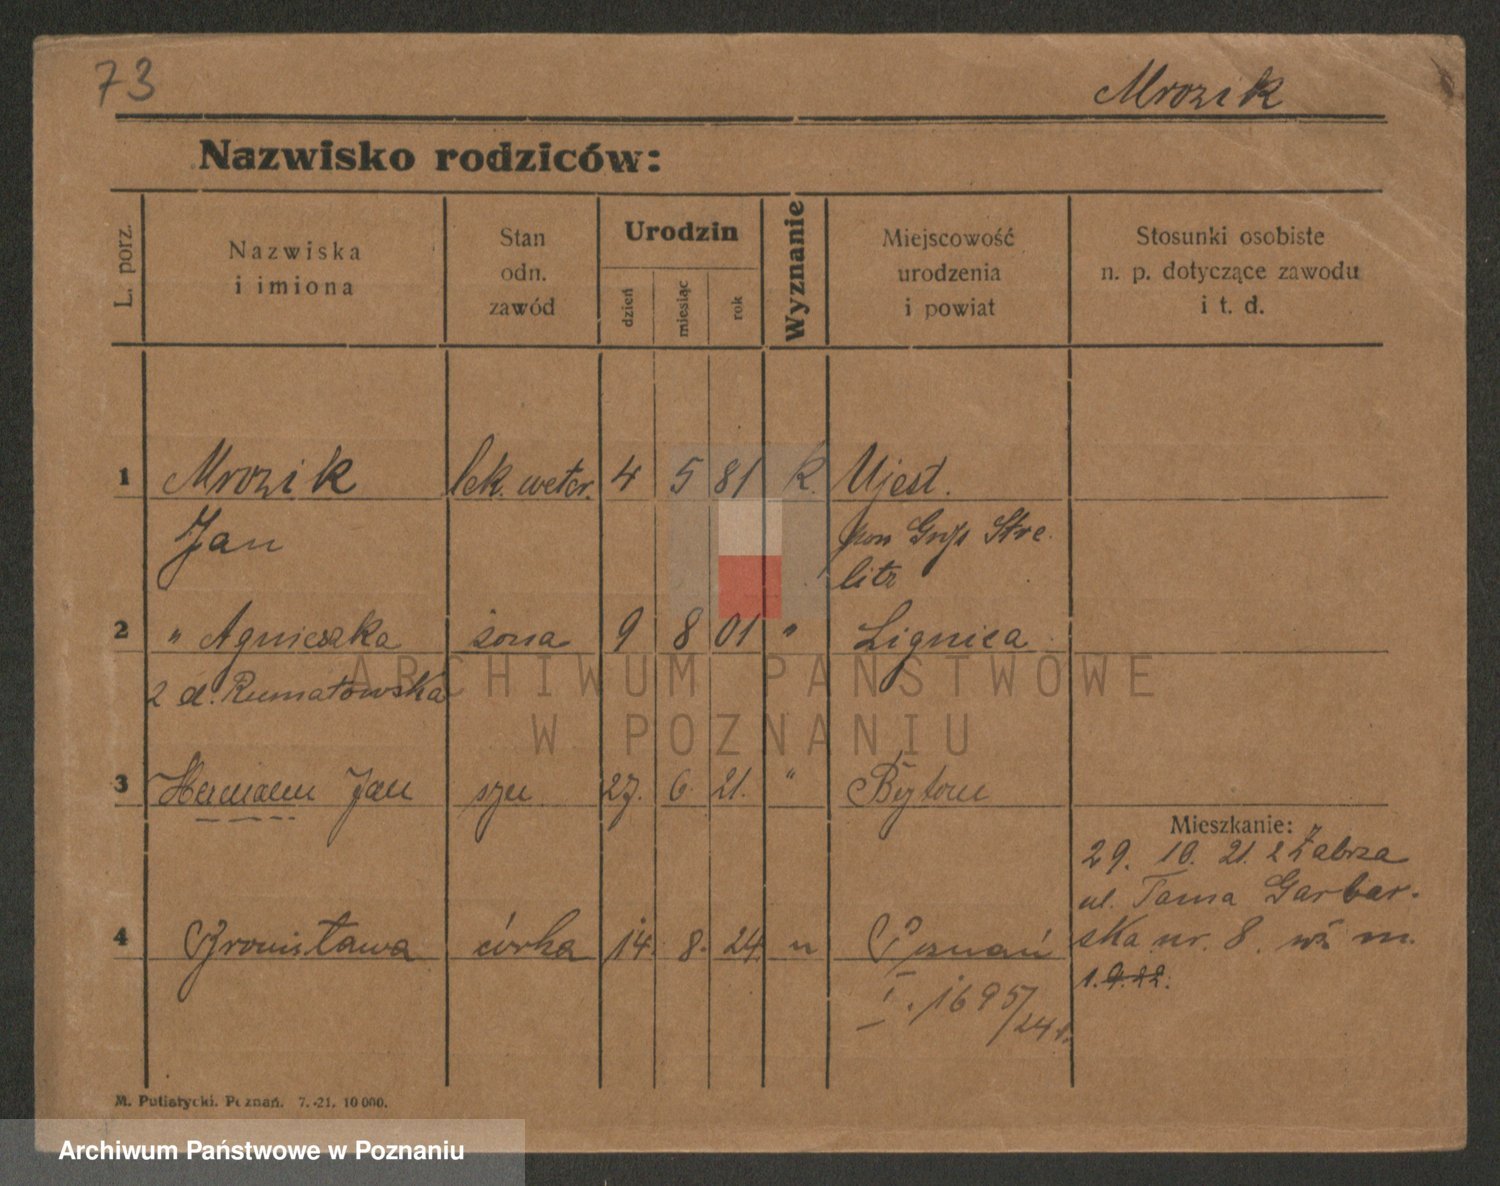 73
Mrozik
Nazwisko rodziców:
L. porz.
Nazwiska
i imiona
Stan
odn.
zawód
Urodzin
dzień
miesiąc
rok
Wyznanie
Miejscowość
urodzenia
i powiat
Stosunki osobiste
n. p. dotyczące zawodu
i t. d.
1 Mrozik lek. weter. 4 5 81 k. Ujest.
Jan pow Stre.
litz
2 " Agnieszka żona 9 8 01 " Lignica
2 d. Rumatowska
3 Hermann Jan syn 27. 6. 21. " Bytom
Mieszkanie:
29. 10. 21. z Zabrza
ul. Tama Garbar-
ska nr. 8.
1. 9. 22.
4 Bronisława córka 14. 8. 24. " Poznań
I. 1695/24
M. Putiatycki. Poznań. 7.-21. 10 000.
ARCHIWUM PAŃSTWOWE
W POZNANIU
Archiwum Państwowe w Poznaniu